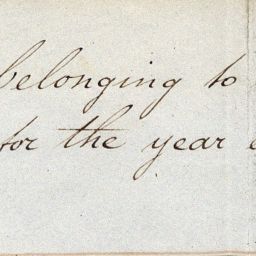 belonging to
for the year